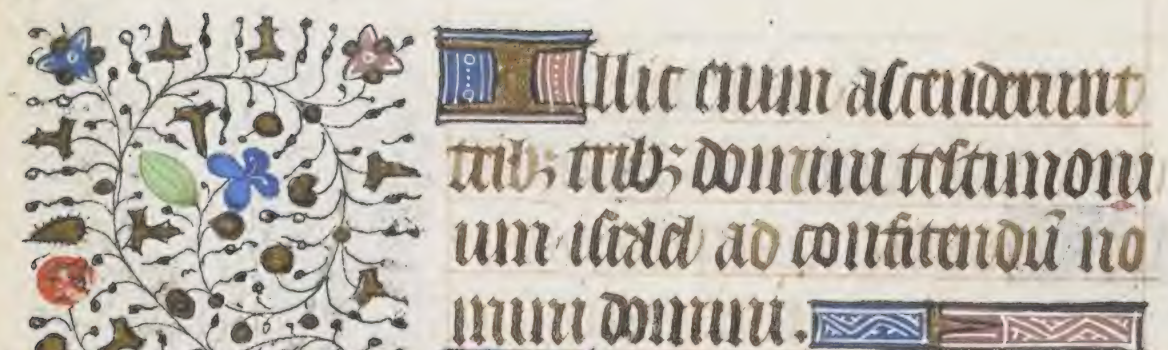 Illic enim ascenderunt
tribꝫ tribꝫ domini testimoni
um israel ad confitendū no
mini domini.